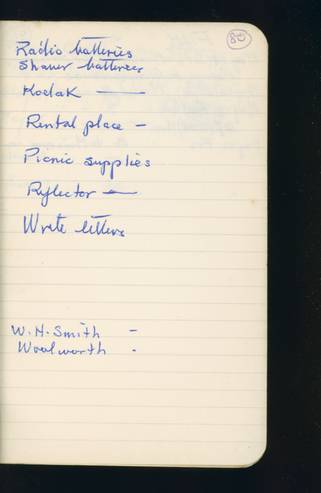 80
Radio batteries
Shaver batteries
Kodak —
Rental place –
Picnic supplies
Reflector —
Write letters
W.H. Smith –
Woolworth -